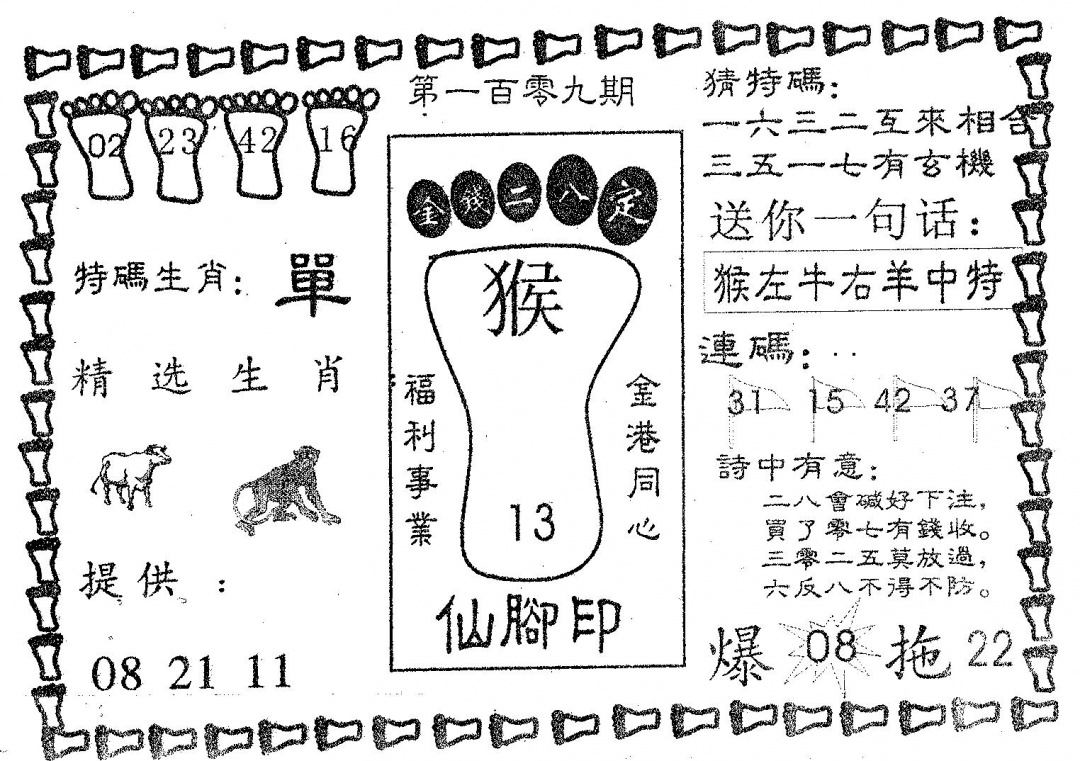 第一百零九期
02 23 42 16
特碼生肖: 單
精选生肖
提供:
08 21 11
金錢二八定
猴
福利事業
金港同心
13
仙腳印
猜特碼:
一六三二互來相合
三五一七有玄機
送你一句话:
猴左牛右羊中特
連碼:..
31 15 42 37
詩中有意:
二八會碱好下注,
買了零七有錢收。
三零二五莫放過,
六反八不得不防。
爆 08 拖 22